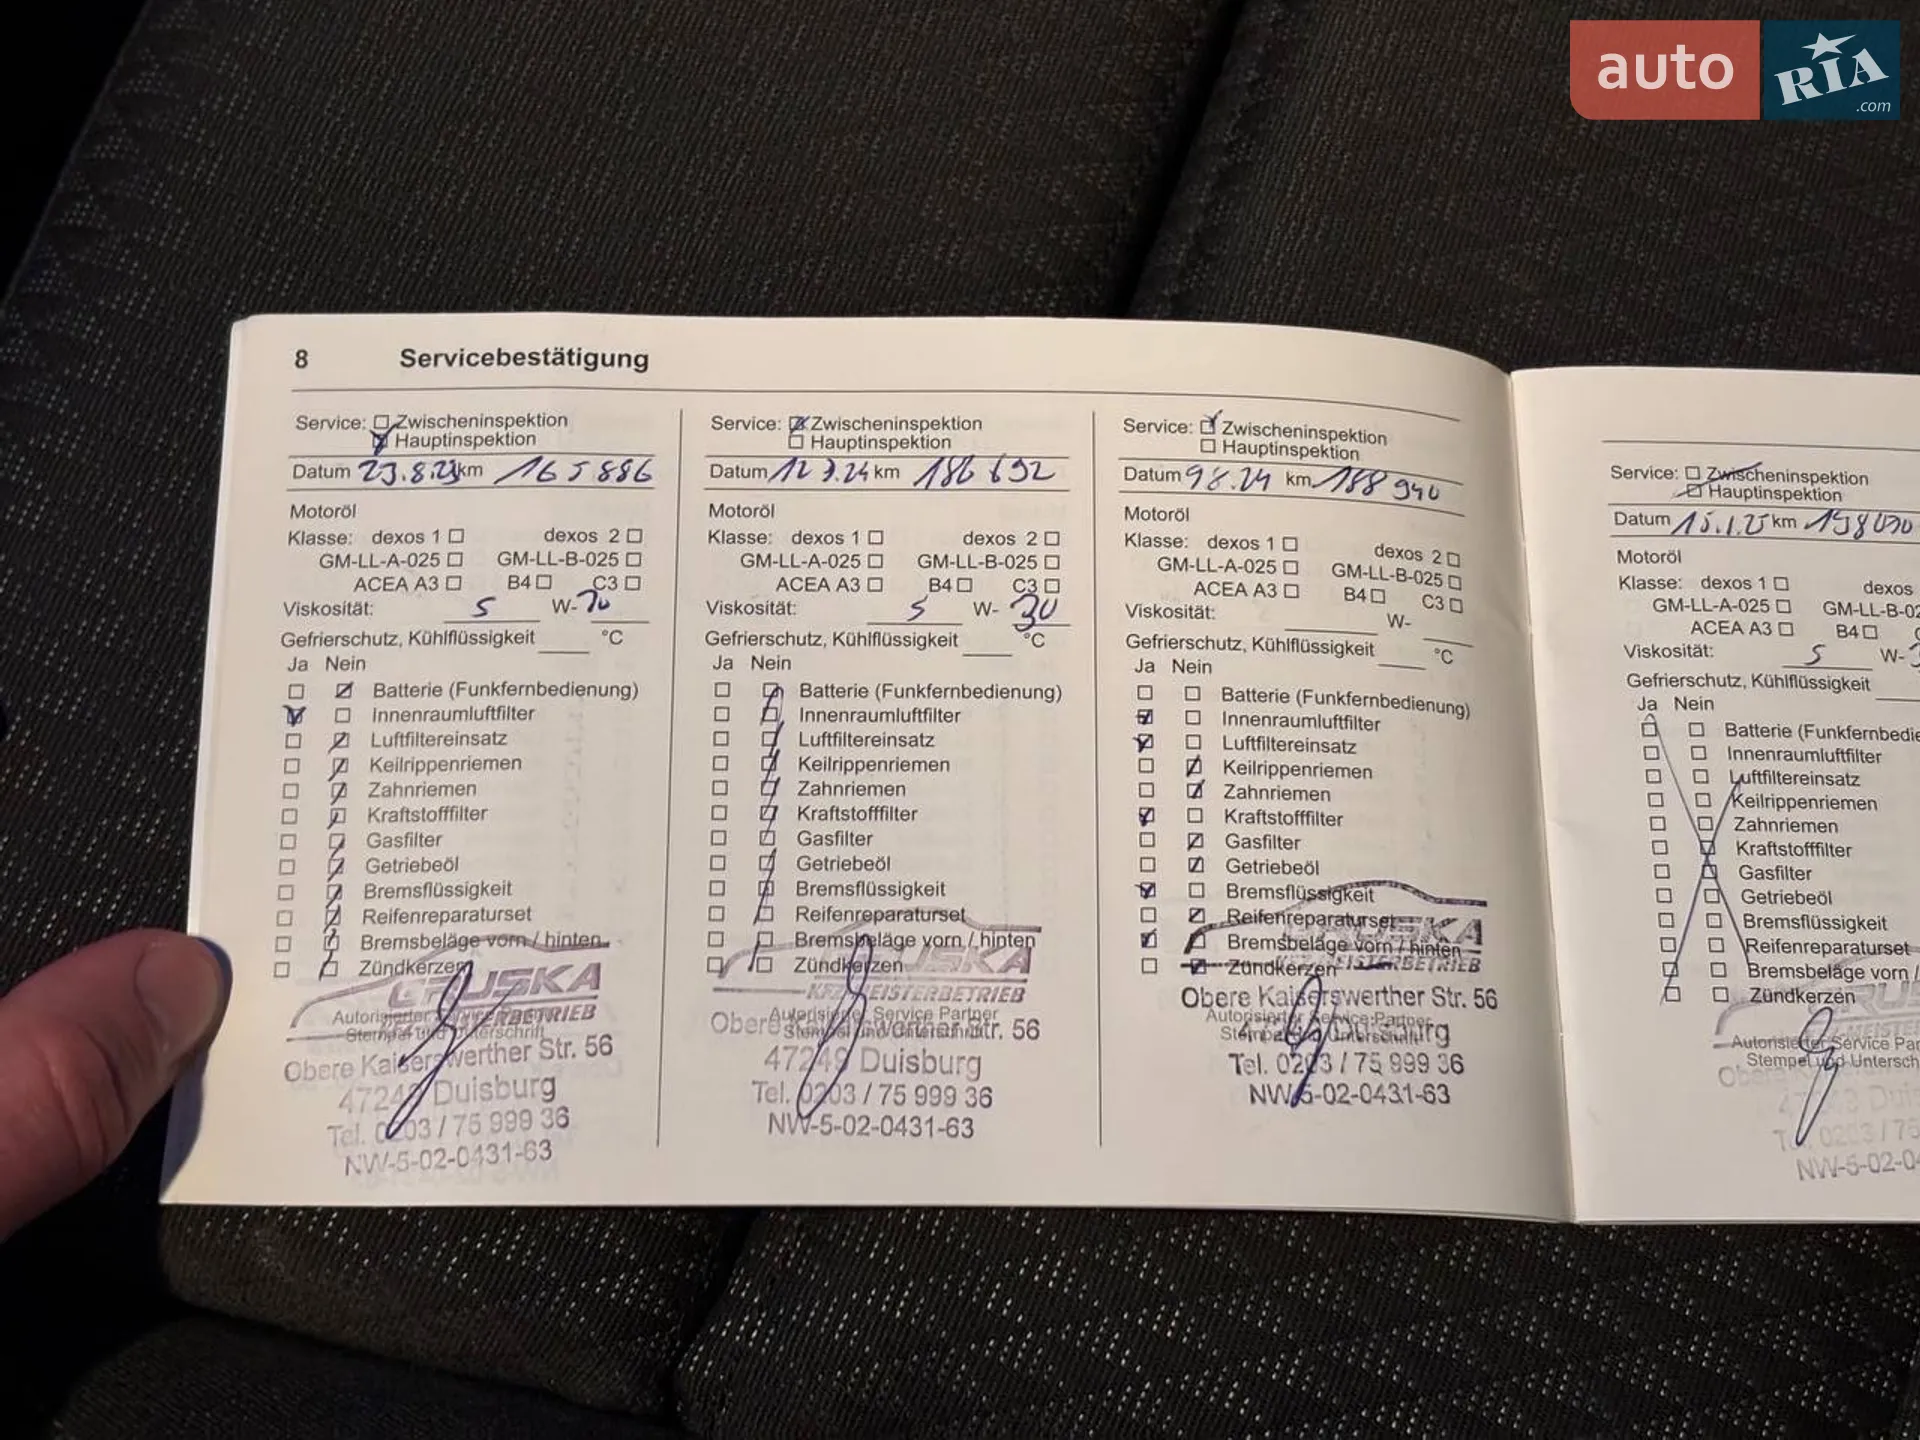 auto RIA.com
8 Servicebestätigung
Service: Zwischeninspektion
Hauptinspektion
Datum 23.8.23 km 165886
Motoröl
Klasse: dexos 1 dexos 2
GM-LL-A-025 GM-LL-B-025
ACEA A3 B4 C3
Viskosität: 5 W-30
Gefrierschutz, Kühlflüssigkeit °C
Ja Nein
Batterie (Funkfernbedienung)
Innenraumluftfilter
Luftfiltereinsatz
Keilrippenriemen
Zahnriemen
Kraftstofffilter
Gasfilter
Getriebeöl
Bremsflüssigkeit
Reifenreparaturset
Bremsbeläge vorn / hinten
Zündkerzen
GRUSKA
KFZ-MEISTERBETRIEB
Autorisierter Service Partner
Stempel und Unterschrift
Obere Kaiserswerther Str. 56
47249 Duisburg
Tel. 0203 / 75 999 36
NW-5-02-0431-63
Service: Zwischeninspektion
Hauptinspektion
Datum 12.3.24 km 186692
Motoröl
Klasse: dexos 1 dexos 2
GM-LL-A-025 GM-LL-B-025
ACEA A3 B4 C3
Viskosität: 5 W-30
Gefrierschutz, Kühlflüssigkeit °C
Ja Nein
Batterie (Funkfernbedienung)
Innenraumluftfilter
Luftfiltereinsatz
Keilrippenriemen
Zahnriemen
Kraftstofffilter
Gasfilter
Getriebeöl
Bremsflüssigkeit
Reifenreparaturset
Bremsbeläge vorn / hinten
Zündkerzen
GRUSKA
KFZ-MEISTERBETRIEB
Autorisierter Service Partner
Stempel und Unterschrift
Obere Kaiserswerther Str. 56
47249 Duisburg
Tel. 0203 / 75 999 36
NW-5-02-0431-63
Service: Zwischeninspektion
Hauptinspektion
Datum 9.8.24 km 188940
Motoröl
Klasse: dexos 1 dexos 2
GM-LL-A-025 GM-LL-B-025
ACEA A3 B4 C3
Viskosität: W-
Gefrierschutz, Kühlflüssigkeit °C
Ja Nein
Batterie (Funkfernbedienung)
Innenraumluftfilter
Luftfiltereinsatz
Keilrippenriemen
Zahnriemen
Kraftstofffilter
Gasfilter
Getriebeöl
Bremsflüssigkeit
Reifenreparaturset
Bremsbeläge vorn / hinten
Zündkerzen
GRUSKA
KFZ-MEISTERBETRIEB
Obere Kaiserswerther Str. 56
Autorisierter Service Partner
Stempel und Unterschrift
47249 Duisburg
Tel. 0203 / 75 999 36
NW-5-02-0431-63
Service: Zwischeninspektion
Hauptinspektion
Datum 15.1.25 km
Motoröl
Klasse: dexos 1 dexos
GM-LL-A-025 GM-LL-B-02
ACEA A3 B4
Viskosität: 5 W-
Gefrierschutz, Kühlflüssigkeit
Ja Nein
Batterie (Funkfernbedie
Innenraumluftfilter
Luftfiltereinsatz
Keilrippenriemen
Zahnriemen
Kraftstofffilter
Gasfilter
Getriebeöl
Bremsflüssigkeit
Reifenreparaturset
Bremsbeläge vorn /
Zündkerzen
Autorisierter Service Par
Stempel und Untersch
NW-5-02-0